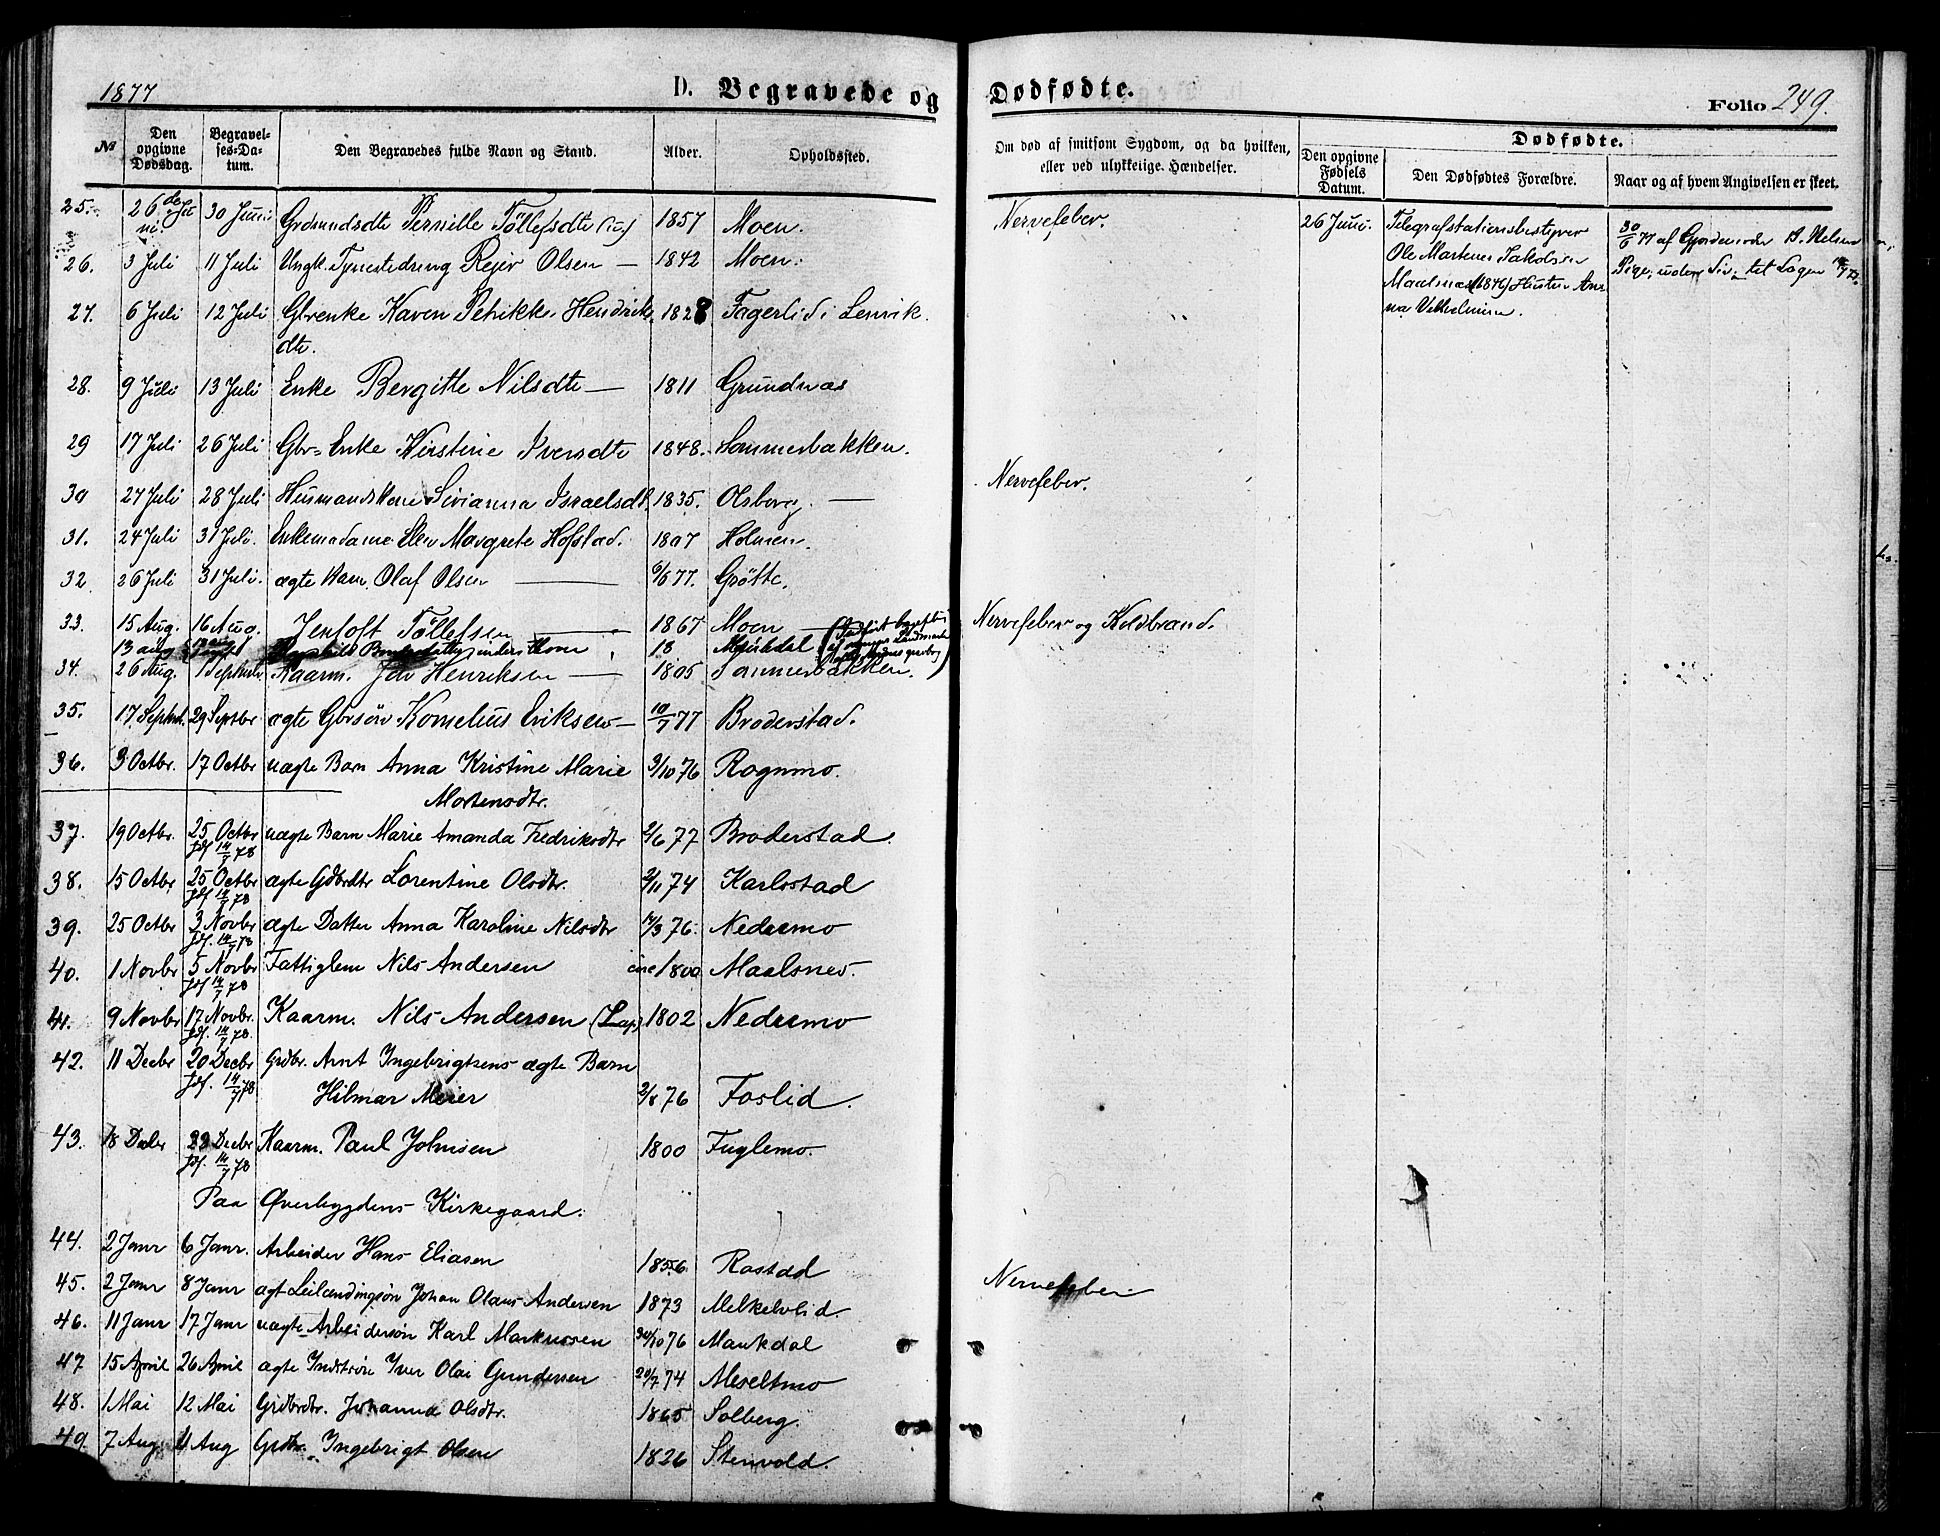 1877 D. Begravede og Dødfødte. Folio 249.
№ Den opgivne Dødsdag. Begravelses-Datum. Den Begravedes fulde Navn og Stand. Alder. Opholdssted. Om død af smitsom Sygdom, og da hvilken, eller ved ulykkelige Hændelser. Den opgivne Fødsels Datum. Dødfødte. Den Dødfødtes Forældre. Naar og af hvem Angivelsen er skeet.
25. 26de Juni. 30 Juni Pernille Töllefsdtr 1857 Moen. Nervefeber. 26 Juni. Telegrafstationsbestyrer
26. 3 Juli 11 Juli Ungk. Olsen — 1842 Moen.
Ole Martenus Jakobsen
Pige, uden Liv
27. 6 Juli 12 Juli Karen Petrikke Hendriks 1828 Fagerlid i Lenvik.
dtr.
Hustru Anna
28. 9 Juli 13 Juli Enke Bergitte Nilsdtr — 1811 Grundnæs
29 17 Juli 26 Juli Gbr. Enke Kirstine Iversdtr 1848. Sommerbakken.
30 27 Juli 28 Juli Husmandskone Sivianna Israelsdt. 1835. Olsborg. — Nervefeber.
31. 24 Juli 31 Juli. Enkemadame Elen Margrete Hofstad. 1807 Holmen.
32 26 Juli 31 Juli. ægte Barn Olaf Olsen — 6/6 77. Grötte.
33. 15 Aug. 16 Aug. Jentoft Töllefsen — 1867 Moen — Nervefeber og Koldbrand.
13 aug
34. 26 Aug. 1 Septbr Kaarm. Henriksen — 1805 Sommerbakken.
35. 17 Septbr. 29 Septbr ægte Gbrsøn Kornelius Eriksen — 10/7 77 Broderstad.
36. 3 Octbr. 17 Octbr uægte Barn Anna Kristine Marie 3/10 76 Rognmo.
Mortensdtr.
37. 19 Octbr. 25 Octbr uægte Barn Marie Amanda Fredriksdtr 2/6 77 Broderstad.
jdf 14/7 78
38. 15 Octbr 25 Octbr ægte Gdbrdtr Lorentine Olsdtr. 2/11 74 Karlsstad
jdf 14/7 78
39. 25 Octbr 3 Novbr ægte Datter Anna Karoline Nilsdtr 14/3 76. Nedremo
jdf. 14/7 78
40. 1 Novbr 5 Novbr Fattiglem Nils Andersen circ 1800 Maalsnes.
jdf 14/7 78
41. 9 Novbr 17 Novbr. Kaarm. Nils Andersen (Lap) 1802 Nedremo
jdf. 14/7 78.
42. 11 Decbr 20 Decbr Grdbr. Arnt Ingebrigtsens ægte Barn
jdf. 14/7 78 Hilmar Meier 2/8 76 Foslid.
43. 18 Decbr 22 Decbr Kaarm. Paul Johnsen 1800 Fuglemo.
jdf. 14/7 78
Paa Øverbygdens Kirkegaard.
44. 2 Janr 6 Janr. Arbeider Hans Eliasen 1856. Rostad
45. 2 Janr 8 Janr ægt Leilændingsøn Johan Olaus Andersen 1873 Melkelvlid. Nervefeber.
46. 11 Janr 17 Janr uægte Arbeidersøn Karl Markussen 30/10 76 Maukdal
47 15 April 26 April ægte Indstsøn Iver Olai Gundersen 20/7 74 Meseltmo
48. 1 Mai 12 Mai Grdbrdtr. Johanna Olsdtr. 1865 Solberg.
49. 7 Aug 11 Aug Grdbr. Ingebrigt Olsen 1826 Stenvold.